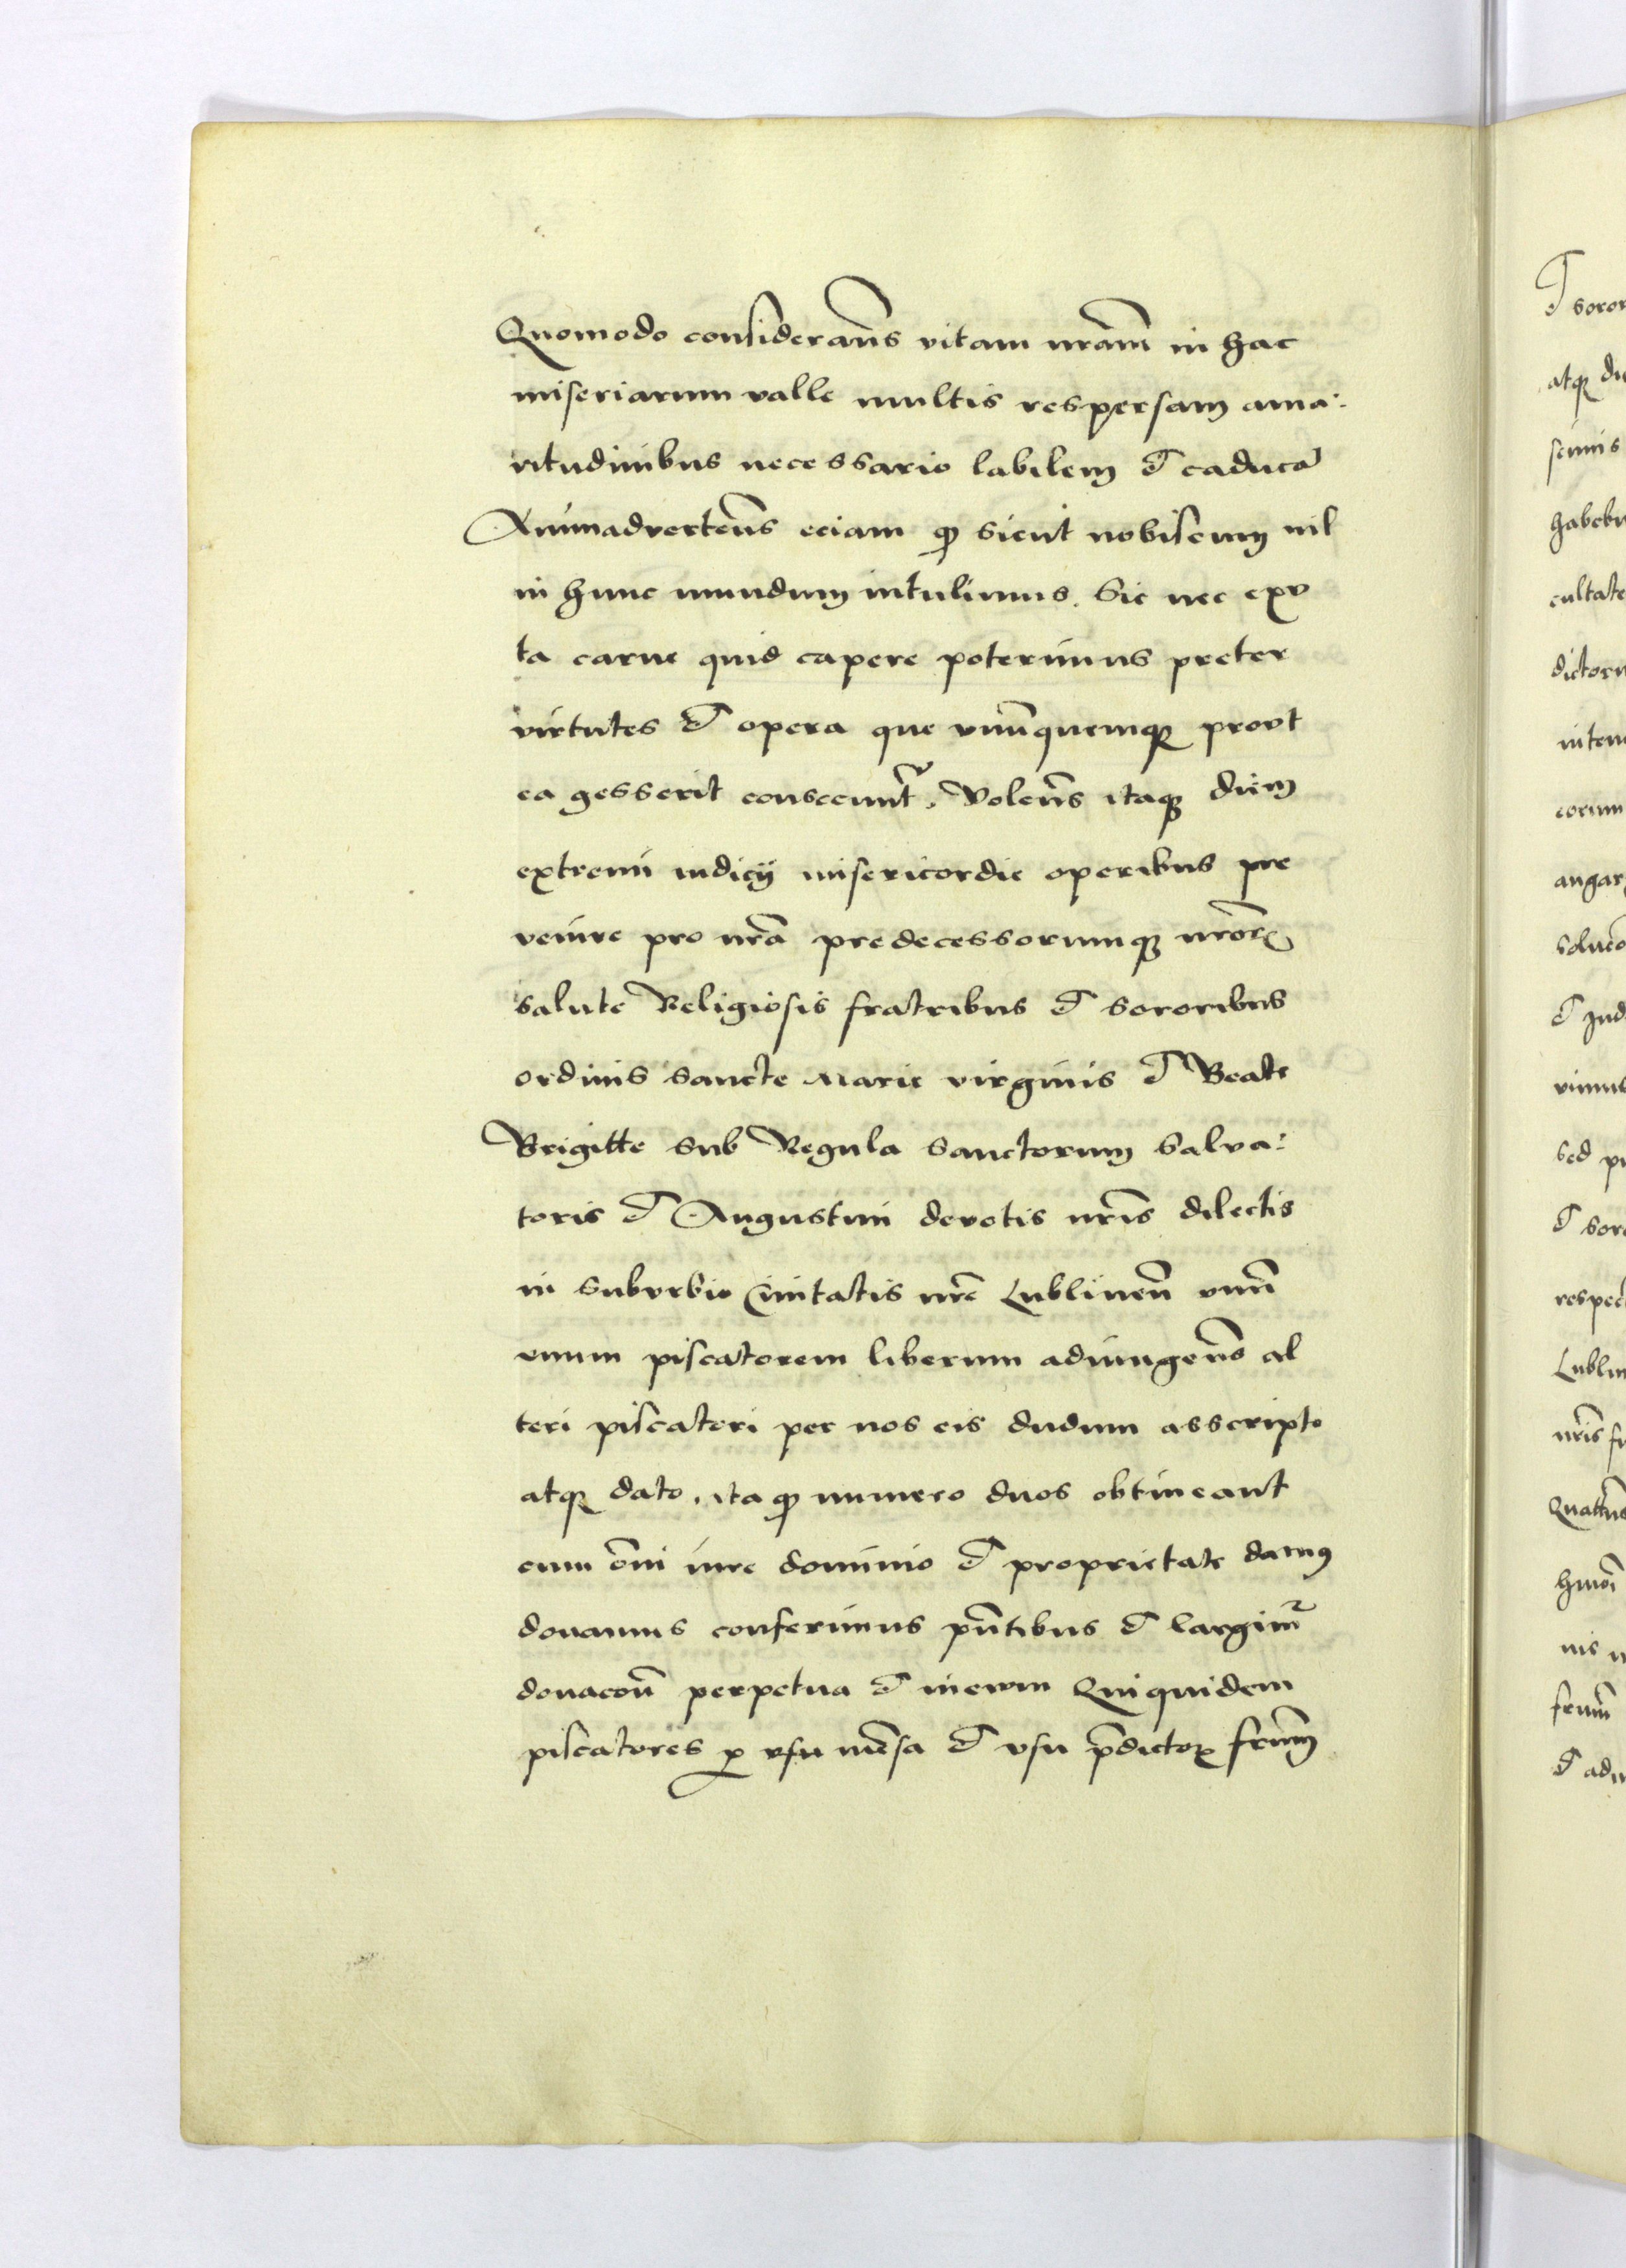 Quomodo considerans vitam nram in hac
miseriarum valle multis respersam ama:
ritudinibus necessario labilem et caduca
Animadvertens eciam quod sicut nobiscum nil
in hunc mundum intulimus. Sic nec exu
ta carne quid capere poterimus preter
virtutes et opera que unumquemque prout
ea gesserit consecuntur. Volens itaque diem
extremi iudicij misericordie operibus pre
venire pro nra predecessorumque nrorum
salute Religiosis fratribus et sororibus
ordinis sancte Marie virginis et Beate
Brigitte sub Regula sanctorum Salva:
toris et Augustini devotis nris dilectis
in suburbio Civitatis nre Lublinen
unum piscatorem liberum adiungendo al
teri piscatori per nos eis dudum asscripto
atque dato, ita quod numero duos obtineant
cum omni iure dominio et proprietate damus
donamus conferimus pntibus et largimur
donacone perpetua et in ewm Qui quidem
piscatores pro usu mensa et usu predictorum frum
et soror
atque du
habebu
cultate
dictoru
eorum
et Jud
sed
et soro
respec
Lublin
nris
et